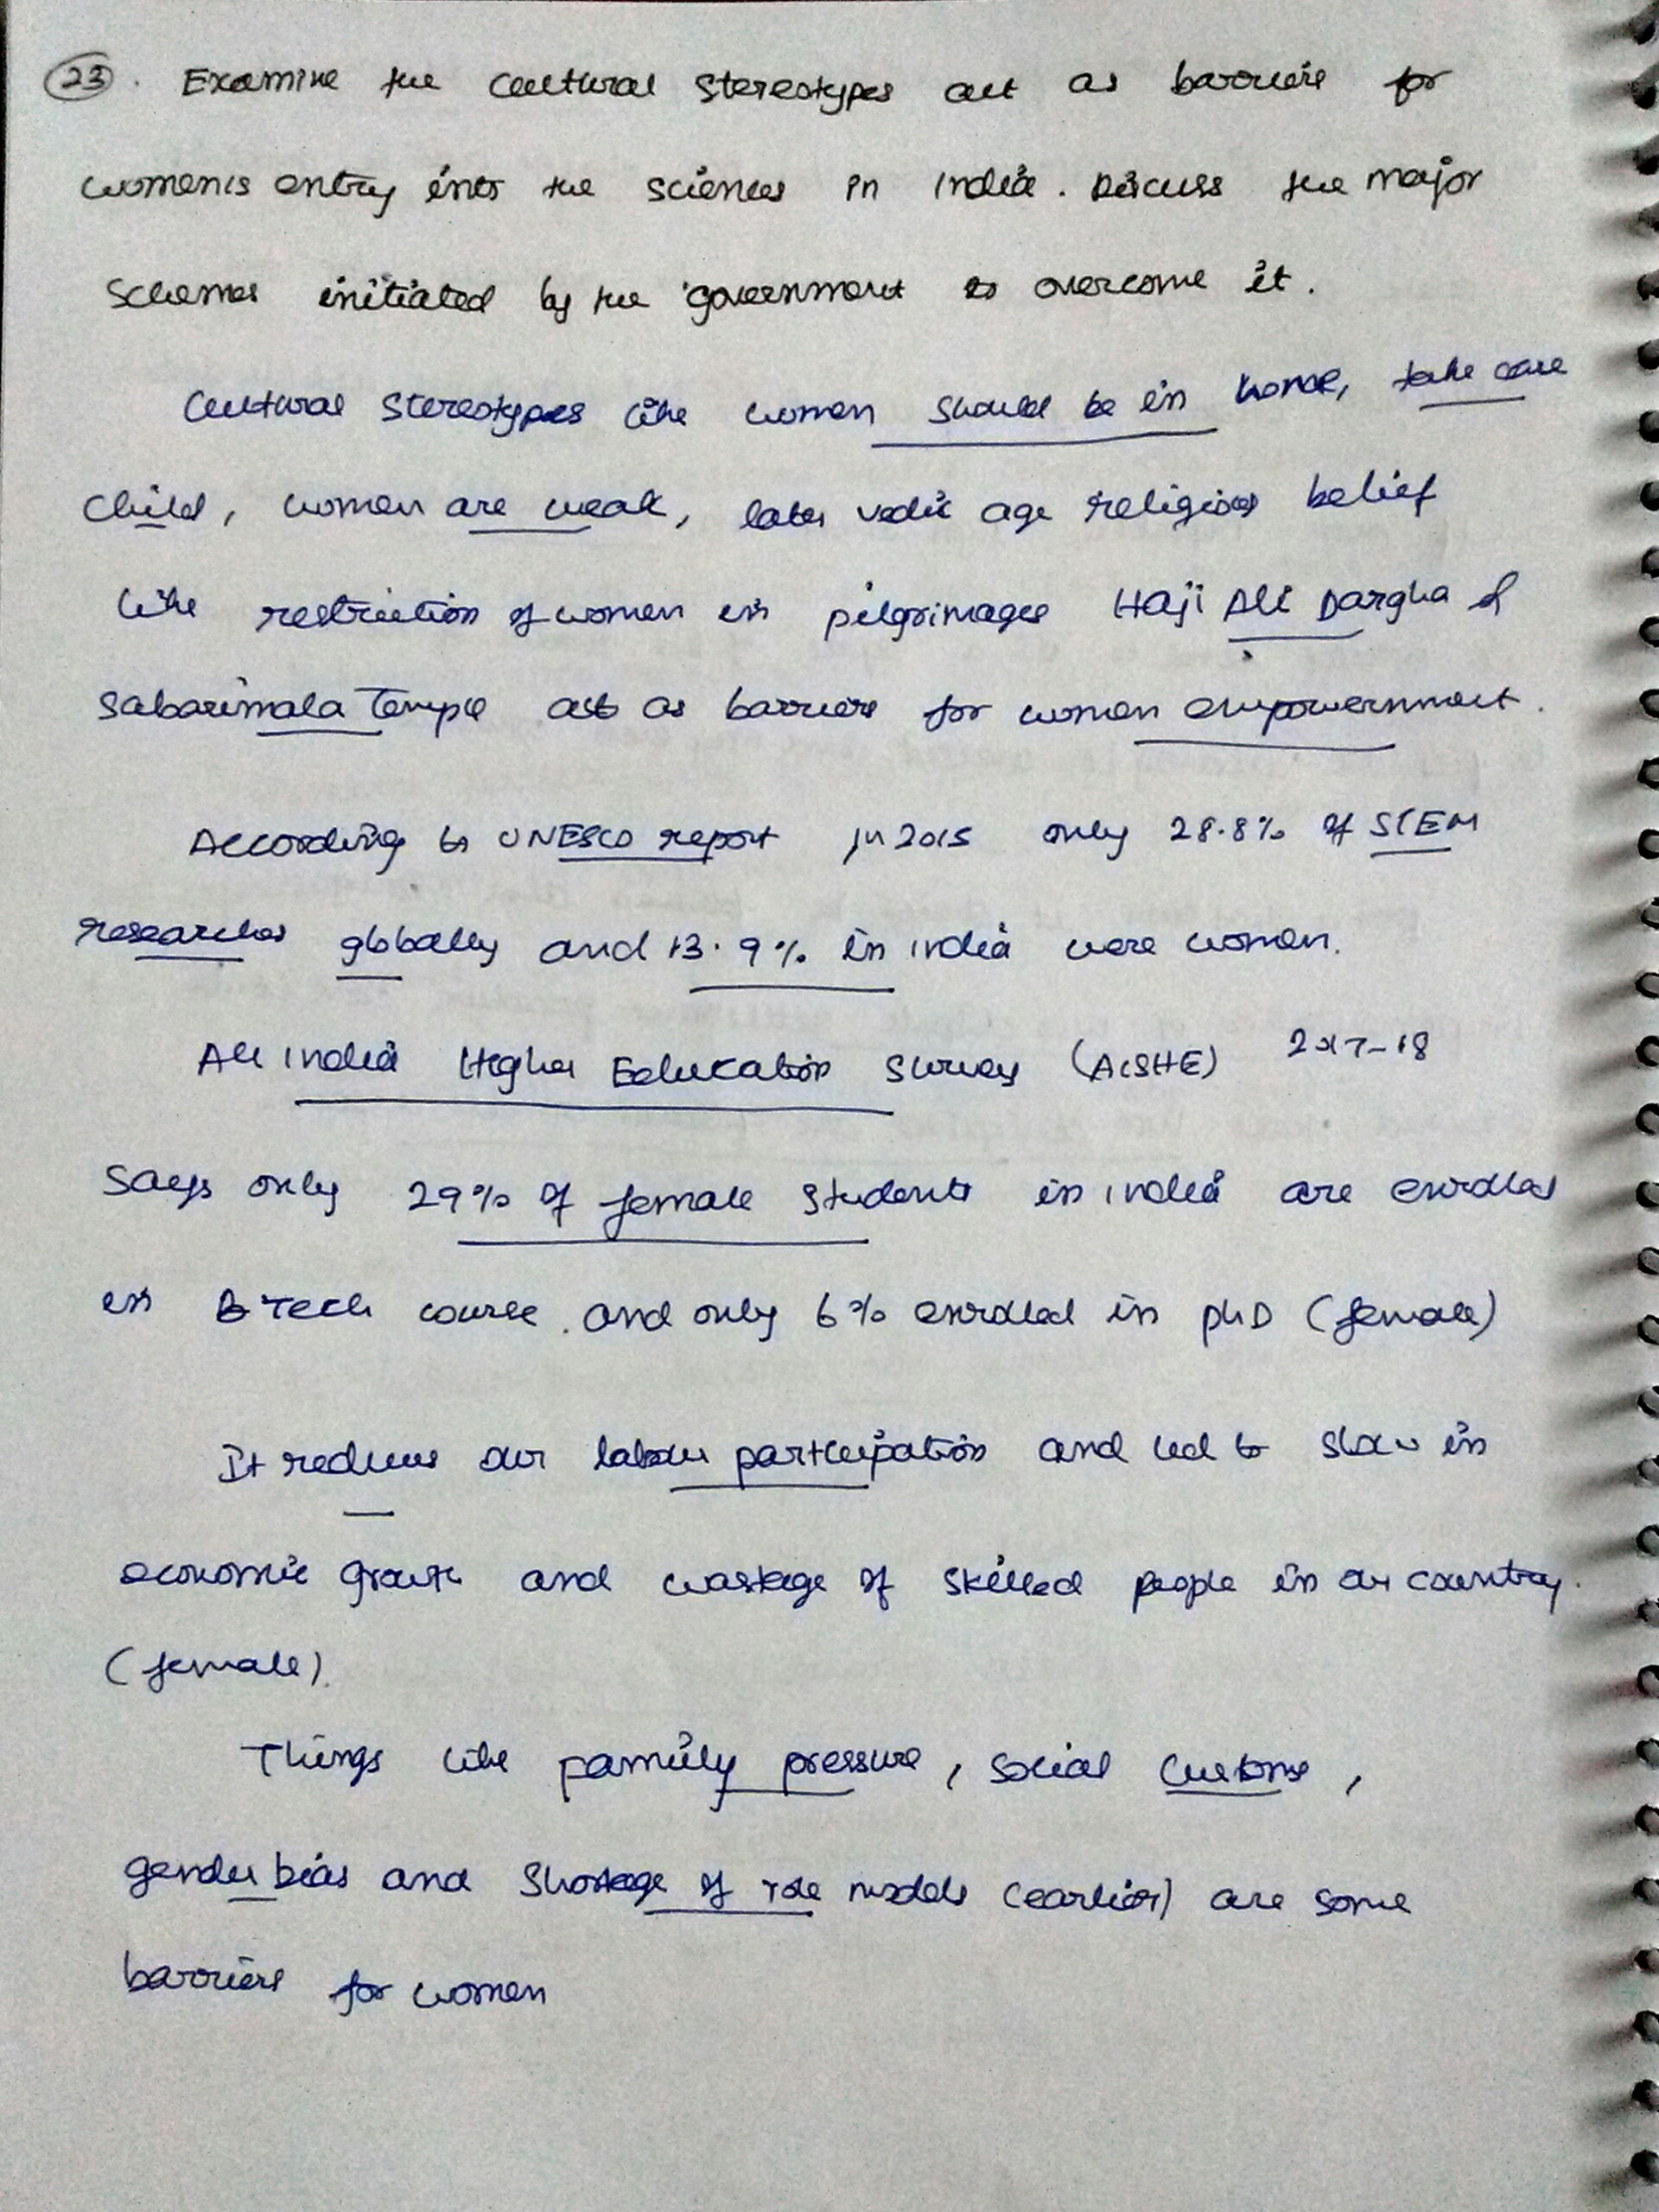 23. Examine the cultural stereotypes act as barriers for
women's entry into the sciences in India. Discuss the major
schemes initiated by the government to overcome it.
Cultural stereotypes like women should be in home, take care
child, women are weak, later vedic age religious belief
like restriction of women in pilgrimages Haji Ali Dargha &
Sabarimala Temple act as barriers for women empowernment.
According to UNESCO report in 2015 only 28.8% of STEM
researches globally and 13.9% in India were women.
All India Higher Education Survey (AISHE) 2017-18
says only 29% of female students in India are enrolled
in B Tech course. and only 6% enrolled in phD (female)
It reduces our labour participation and led to slow in
economic growth and wastage of skilled people in our country.
(female).
Things like family pressure, social customs,
gender bias and shortage of role models (earlier) are some
barriers for women